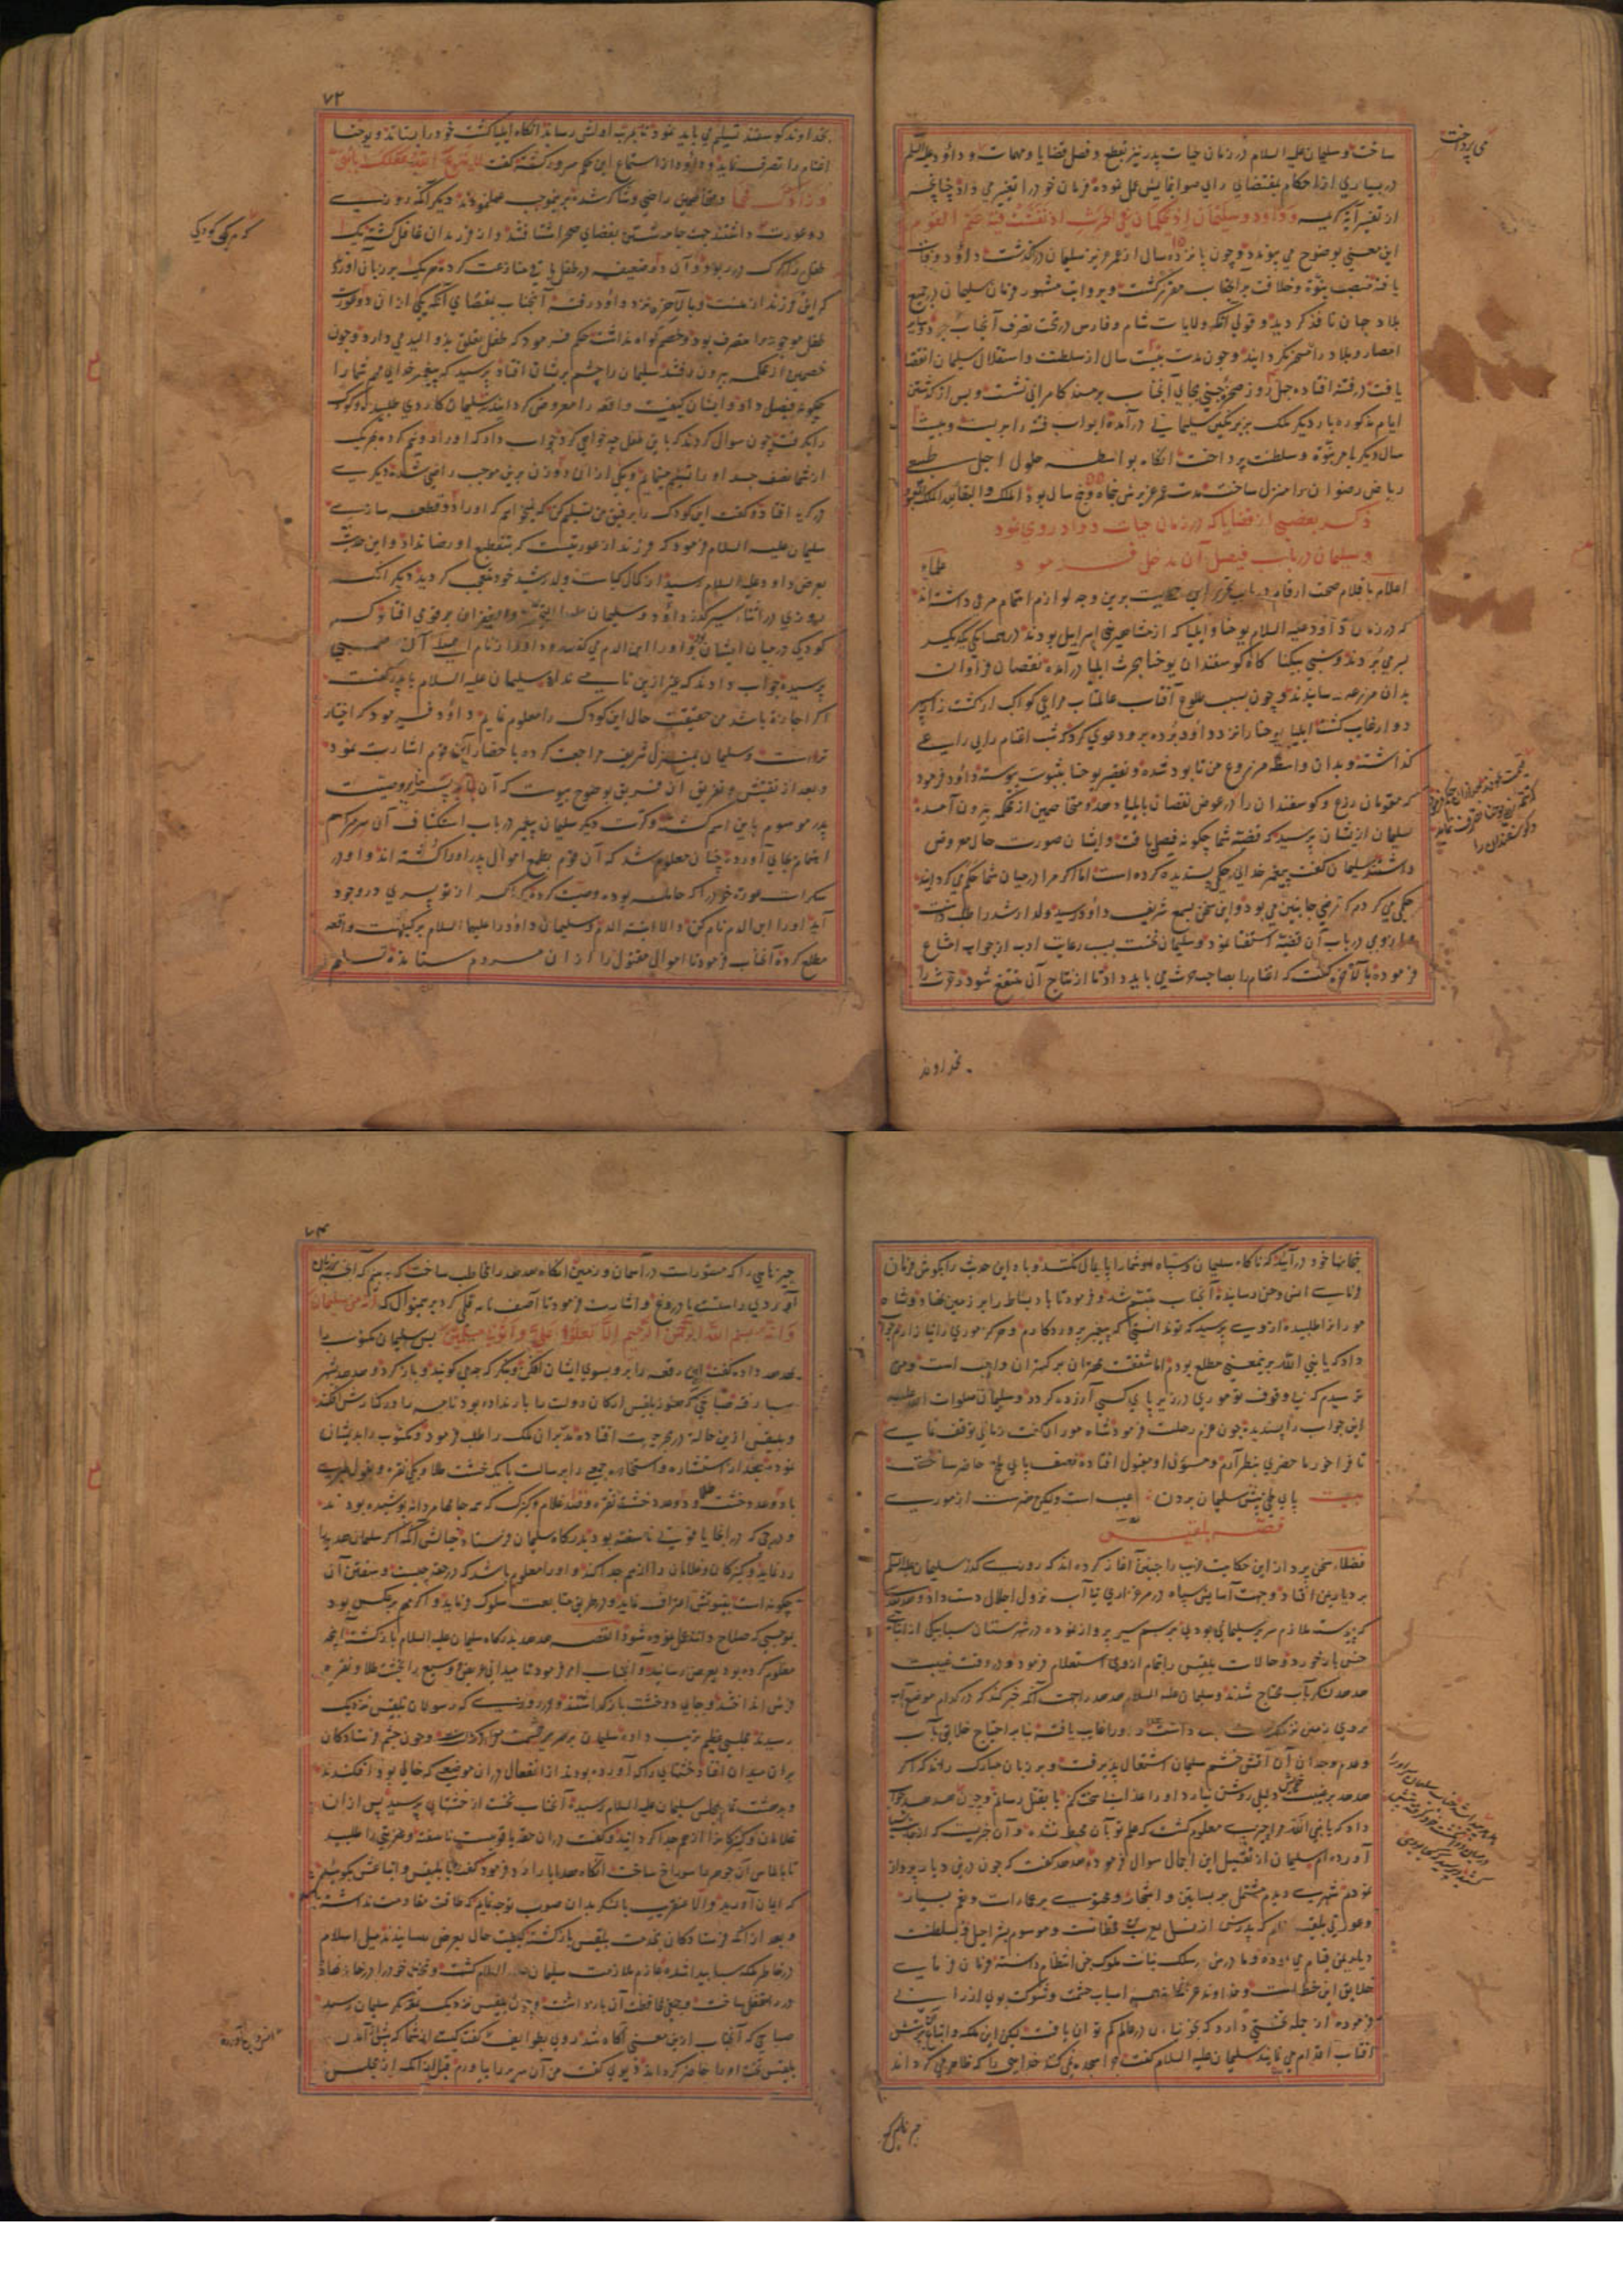 ساخت و سلیمان علیه السلام در زمان حیات پدر نیز بقطع و فصل قضایا و مهمات و داود علیه السلم
می پرداخت
در بسیاری از احکام بمقتضای رای صوابنمایش عمل نموده فرمان خود را تغییر می داد چنانچه
از تفسیر آیه کریمه وداود وسلیمان اذ یحکمان فی الحرث اذ نفشت فیه غنم القوم
این معنی بوضوح می پیوندد و چون پانزده سال از عمر عزیز سلیمان در گذشت داود وفات
یافته منصب نبوة و خلافت بر آنجناب مقرر گشت و بروایت مشهور فرمان سلیمان در جمیع
بلاد جهان نافذ گردید و قولی آنکه ولایات شام و فارس در تحت تصرف آنجناب بود و سایر
امصار و بلاد را مسخر نگردانید و چون مدت بیست سال از سلطنت و استقلال سلیمان انقضا
یافت در فتنه افتاده چهل روز صخره جنی بجای آنجناب بر مسند کامرانی نشست و پس از گذشتن
ایام مذکوره بار دیگر ملک بزیر نگین سلیمانی در آمده ابواب فتنه را بر بست و بیست
سال دیگر بامر نبوة و سلطنت پرداخت آنگاه بواسطه حلول اجل طبیعی
ریاض رضوان را منزل ساخت مدت عمر عزیزش پنجاه و پنج سال بود الملک والبقاء لملک
ذکر بعضی از قضایا که در زمان حیات داود روی نمود
و سلیمان در باب فیصل آن مدخل فرمود
علماء
اعلام باقلام صحت ارقام در باب تحریر این حکایت برین وجه لوازم اهتمام مرعی داشته اند
که در زمان داود علیه السلام یوحنا و ایلیا که از مشاهیر بنی اسرائیل بودند در همسایگی یکدیگر
بسر می بردند و شبی بیگناه گاه گوسفندان یوحنا بحرث ایلیا در آمده نقصان فراوان
بدان مزرعه رسانیدند و چون بسبب طلوع آفتاب عالمتاب مراعی کواکب از کشت زار سپهر
رو آورد غایب گشت ایلیا یوحنا را نزد داود برده برو دعوی کرد که شب اغنام را بی راعی
گذاشته و بدان واسطه مزروع من نابود شده و تقصیر یوحنا بثبوت پیوسته داود فرمود
که مقومان زرع و گوسفندان را در عوض نقصان بایلیا دهد و متخاصمین از محکمه بیرون آمده
سلیمان از ایشان پرسید که قضیه شما چگونه فیصل یافت و ایشان صورت حال معروض
داشتند سلیمان گفت پیغمبر خدا این حکمی پسندیده کرده است اما اگر مرا در میان شما حکم می گردانید
حکمی می کردم که مرضی جانبین می بود و این سخن بسمع شریف داود رسید و ولد ارشد را طلب داشت
و از وی در باب آن قضیه استفتا نمود و سلیمان نخست بسبب رعایت ادب از جواب امتناع
فرموده بالآخره گفت که اغنام را بصاحب حرث می باید داد تا از نتاج آن منتفع شود و حرث را
بخداوند
۷۲
بخداوند گوسفند تسلیم می باید نمود تا بمرتبه اولش رساند آنگاه ایلیا کشت خود را بستاند و یوحنا
اغنام را تصرف نماید و داود از استماع این حکم مسرور گشته گفت
و متخاصمین راضی و شاکر شده برینموجب عمل نمودند دیگر آنکه روزی
دو عورت داشتند جهت جامه شستن بفضای صحرا شتافتند و از فرزندان غافل گشته یک
طفل را گرگ در ربود و آن دو ضعیفه در طفل باقی منازعت کرده هر یک بر زبان آوردند
که این فرزند از منست و بالآخره نزد داود رفته آنجناب بمقتضای آنکه یکی از آن دو عورت
طفل موجود را متصرف بود و خصم گواه نداشت حکم فرمود که طفل تعلق بذو الید می دارد و چون
خصمین از محکمه بیرون رفتند سلیمان را چشم بریشان افتاد پرسید که پیغمبر خدای مهم شما را
چگونه فیصل داد و ایشان کیفیت واقعه را معروض گردانیدند سلیمان کاردی طلبیده کودک
را بگرفت چون سوال کردند که باین طفل چه خواهی کرد جواب داد که او را دو نیم کرده بهر یک
از شما نصف جسد او را تسلیم مینمایم و یکی از آن دو زن برین موجب راضی شده دیگری
در گریه افتاد و گفت این کودک را برفیق من تسلیم کن که نمیخواهم که او را دو قطعه سازی
سلیمان علیه السلام فرمود که فرزند از عورتیست که بتقطیع او رضا نداد و این حدیث
بعرض داود علیه السلام رسید از کمال کیاست ولد رشید خود متعجب گردید دیگر آنکه
روزی در اثناء سیر گذر داود و سلیمان علیهما بر قومی افتاد که
کودکی در میان ایشان بود و او را ابن الدم می گفتند و داود از نام اصلی آن صبی
پرسیده جواب دادند که غیر ازین نامی ندارد سلیمان علیه السلام با پدر گفت
اگر اجازت باشد من حقیقت حال این کودک را معلوم نمایم داود فرمود که اختیار
تراست و سلیمان بمنزل شریف مراجعت کرده باحضار این قوم اشارت نمود
و بعد از تفتیش و تفریق آن فریق بوضوح پیوست که آن پسر بنابر وصیت
پدر موسوم باین اسم گشته و کرت دیگر سلیمان پیغمبر در باب استکشاف آن سر مراسم
اهتمام بجای آورده چنان معلوم شد که آن قوم بطمع اموال پدر او را کشته اند و او در
سکرات عورت خود را که حامله بوده وصیت کرده که اگر از تو پسری در وجود
آید او را ابن الدم نام کن والا ابنة الدم و سلیمان داود را علیهما السلام بر کیفیت واقعه
مطلع کرده آنجناب فرمود تا اموال مقتول را از آن مردم ستانده تسلیم
بخانها خود در آیید که ناگاه سلیمان و سپاه او شما را پایمال نکنند و باد این حدیث را بگوش فرمان
فرمای انس و جن رسانید آنجناب متبسم شد و فرمود تا باد بساط را بر زمین نهاد و شاه
مورانرا طلبیده از وی پرسید که تو ندانستی که پیغمبر پروردگارم و هرگز موری را نیازارم جواب
داد که یا نبی الله برینمعنی مطلع بودم اما شفقت مهتران بر کهتران واجب است و من
ترسیدم که بی وقوف تو موری در زیر پای کسی آزرده گردد و سلیمان صلوات الله علیه
این جواب را پسندیده چون عزم رحلت فرمود شاه موران گفت زمانی توقف نمای
تا فراخور ما حضری بنظر آرم و مسؤل او مقبول افتاده نصف پای ملخ حاضر ساخت
بیت پای ملخی پیش سلیمان بردن عیب است ولیکن هنرست از موری
قصه بلقیس
فضلاء سخن پرداز این حکایت غریب را چنین آغاز کرده اند که روزی گذر سلیمان علیه السلم
بر دیار یمن افتاد و جهت آسایش سپاه در مرغزاری نایاب نزول اجلال دست داد و هدهد
که پیوسته ملازم سریر سلیمانی بودی برسم سیر پرواز نموده در شهرستان سبا بیکی از ابنای
جنس باز خورد و حالات بلقیس را بتمام از وی استعلام فرمود و در وقت غیبت
هدهد لشکر بآب محتاج شدند و سلیمان علیه السلام هدهد را جست آنکه خبر کند که در کدام موضع آب
بروی زمین نزدیکست
و عدم وجدان آن آتش خشم سلیمان اشتعال پذیرفت و بر زبان مبارک راند که اگر
هدهد بر غیبت خویش دلیلی روشن نیارد او را عذابی سخت کنم یا بقتل رسانم و چون هدهد
داد که یا نبی الله مرا چیزی معلوم گشت که علم تو بآن محیط نشده و آن خبریست که از جانب سبا
آورده ام سلیمان از تفصیل این اجمال سوال فرموده هدهد گفت که چون درین دیار پرواز
نمودم شهری دیدم مشتمل بر بساتین و اشجار و محتوی بر عمارات و نعم بسیار
و عورتی بلقیس نام که پدرش از نسل یعرب بن قحطانست و موسوم بشراحیل بسلطنت
دیار یمن قیام می نموده و مادرش در سلک بنات ملوک جن انتظام داشته فرمان فرمای
خلایق این خطه است و خداوند عز اسمه اسباب حشمت و شوکت بوی ارزانی
فرموده از جمله تختی دارد که بخوبی آن در عالم کم توان یافت لیکن این ملکه و اتباعش پرستش
آفتاب اقدام می نمایند سلیمان علیه السلام گفت چرا سجده نمی کنند خدایی را که ظاهر می گرداند
چیزهای که
۷۳
چیزهایی را که مستور است در آسمان و زمین آنگاه هدهد را مخاطب ساخت که ببینم که آنچه
آوردی راستست یا دروغ و اشارت فرمود تا آصف نامه قلمی کرد برینمنوال که انه من سلیمان
وانه بسم الله الرحمن الرحیم الا تعلوا علی وأتونی مسلمین پس سلیمان مکتوب را
بهدهد داده گفت این رقعه را ببر و بسوی ایشان افکن و بنگر که چه می گویند و باز گرد و هدهد بشهر
سبا رفته صباحی که هنوز بلقیس ارکان دولت را بار نداده بود نامه را در کنارش افکند
و بلقیس ازین حالت در بحر حیرت افتاده مدبران ملک را طلب فرمود و مکتوب را بدیشان
نموده بعد از استشاره و استخاره جمعی را برسالت با یک خشت طلا و یکی نقره و بقول طبری
با دو عدد خشت طلا و دو عدد خشت نقره و صد غلام و کنیزک که همه جامهاء مردانه پوشیده بودند
و درجی که در آنجا یاقوتی ناسفته بود بدرگاه سلیمان فرستاد خیالش آنکه اگر سلیمان هدیه را
رد نماید و کنیزکان و غلامان را از هم جدا کند و او را معلوم باشد که در حقه چیست و سفتن آن
چگونه است بنبوتش اعتراف نماید و در طریق متابعت سلوک فرماید و اگر مهم برعکس بود
بموجبی که صلاح داند عمل نموده شود القصه هدهد بدرگاه سلیمان علیه السلام بازگشته آنچه
معلوم کرده بود بعرض رسانید و آنجناب امر فرمود تا میدانی عریض و وسیع را بخشت طلا و نقره
فرش انداختند و جای دو خشت باز گذاشتند و در روزی که رسولان بلقیس نزدیک
رسیدند مجلسی عظیم ترتیب داده سلیمان بر سریر حشمت متمکن گشت و چون چشم فرستادگان
بران میدان افتاد خشتهای را که آورده بودند از انفعال در آن موضعی که خالی بود افکندند
و بدهشت تمام بمجلس سلیمان علیه السلام رسیده آنجناب نخست از خشتها پرسید پس از آن
غلامان و کنیزکان را از هم جدا گردانید و گفت در آن حقه یاقوتیست ناسفته و عفریتی را طلبید
تا بالماس آن جوهر را سوراخ ساخت آنگاه هدایا را رد فرمود گفت با بلقیس و اتباعش بگویید
که ایمان آورید والا عنقریب با لشکر بدان صوب توجه نمایم که طاقت مقاومت نداشته باشید
و بعد از آنکه فرستادگان بخدمت بلقیس بازگشته کیفیت حال بعرض رسانیدند میل اسلام
در خاطر ملکه سبا پیدا شده عازم ملازمت سلیمان علیه السلام گشت و تخت خود را در خانه نهاد
و در را مقفل ساخت و جمعی بمحافظت آن باز داشت و چون بلقیس نزدیک معسکر سلیمان رسید
صباحی که آنجناب ازین معنی آگاه شد روی بطوایف گفت کیست از شما که پیش از آمدن
بلقیس تخت او را حاضر گرداند دیوی گفت من آن سریر را بیاورم قبل از آنکه ازین مجلس